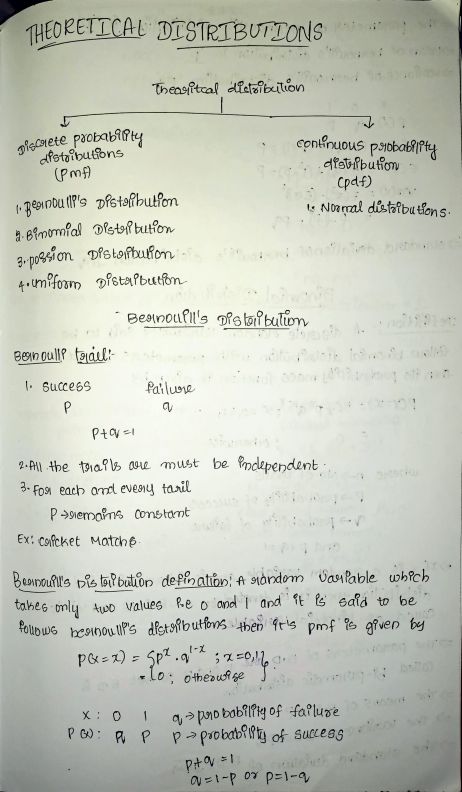 THEORETICAL DISTRIBUTIONS
Thearitcal distribution
Discrete probability distributions (pmf)
1. Bernoulli's Distribution
2. Binomial Distribution
3. possion Distribution
4. uniform Distribution
continuous probability distribution (pdf)
1. Normal distributions.
Bernoulli's Distribution
Bernoulli trail:-
1. success failure
p q
p+q=1
2. All the trails are must be independent.
3. For each and every taril
p→remains constant
Ex: cricket Match.
Bernoulli's Distribution defination: A random variable which
takes only two values i.e 0 and 1 and it is said to be
follows bernoulli's distributions then it's pmf is given by
p(x=x) = {p^x . q^1-x ; x=0,1}
= {0 ; otherwise }
x : 0 1 q→probability of failure
p(x): q p p→probability of success
p+q=1
q=1-p or p=1-q